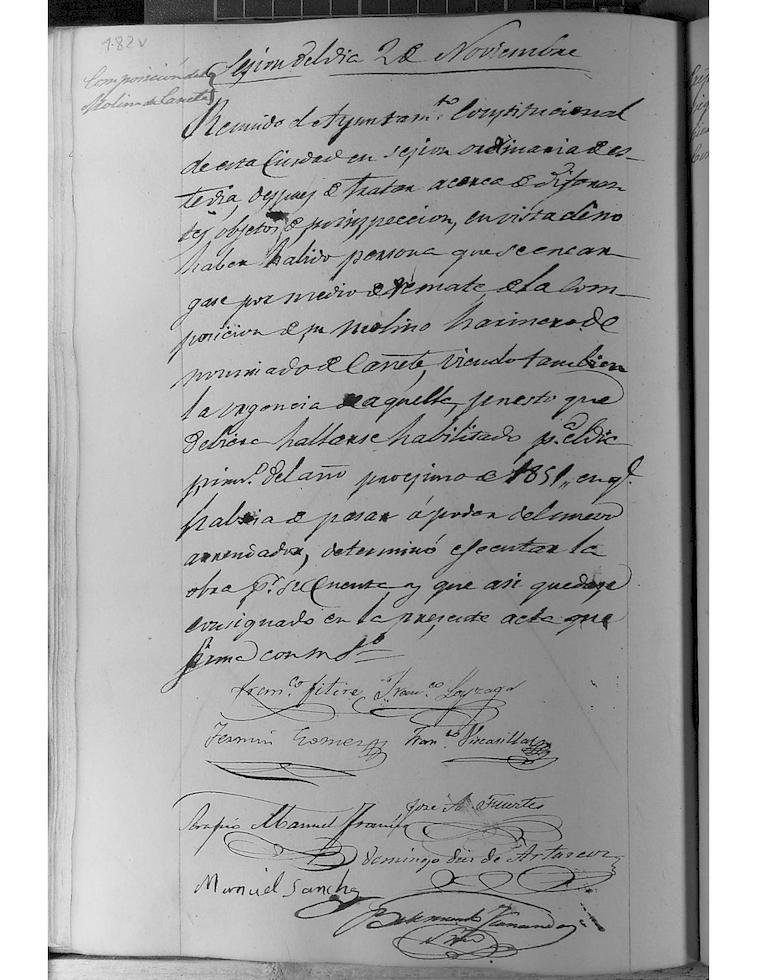 182v
Sesion del dia 2 de Noviembre
Composición del
Molino de Canete
Reunido el Ayuntam.to Constitucional
de esta Ciudad en sesion ordinaria de es-
te dia, despues de tratar acerca de diferen-
tes objetos de su inspeccion, en vista de no
haber habido persona que se encar-
gase por medio de remate de la Com-
posicion de su molino harinero de
nominado de Cañete, viendo tambien
la urgencia de aquella, puesto que
debiera hallarse habilitado p.a el dia
prim.o del año procsimo de 1851, en q.e
habra de pasar á poder del nuevo
arrendador, determinó ejecutar la
obra p.r su Cuenta, y que asi quedase
consignado en la presente acta que
firma con mi el S.o
Fran.co Fitire Fran.co Loyzaga
Fermin Gomez Fran.co Viscasillas
José A. Fuertes
Serapio Manuel Francés
Domingo Diez de Artazcoz
Manuel Sanchez
Bermundo Fernando